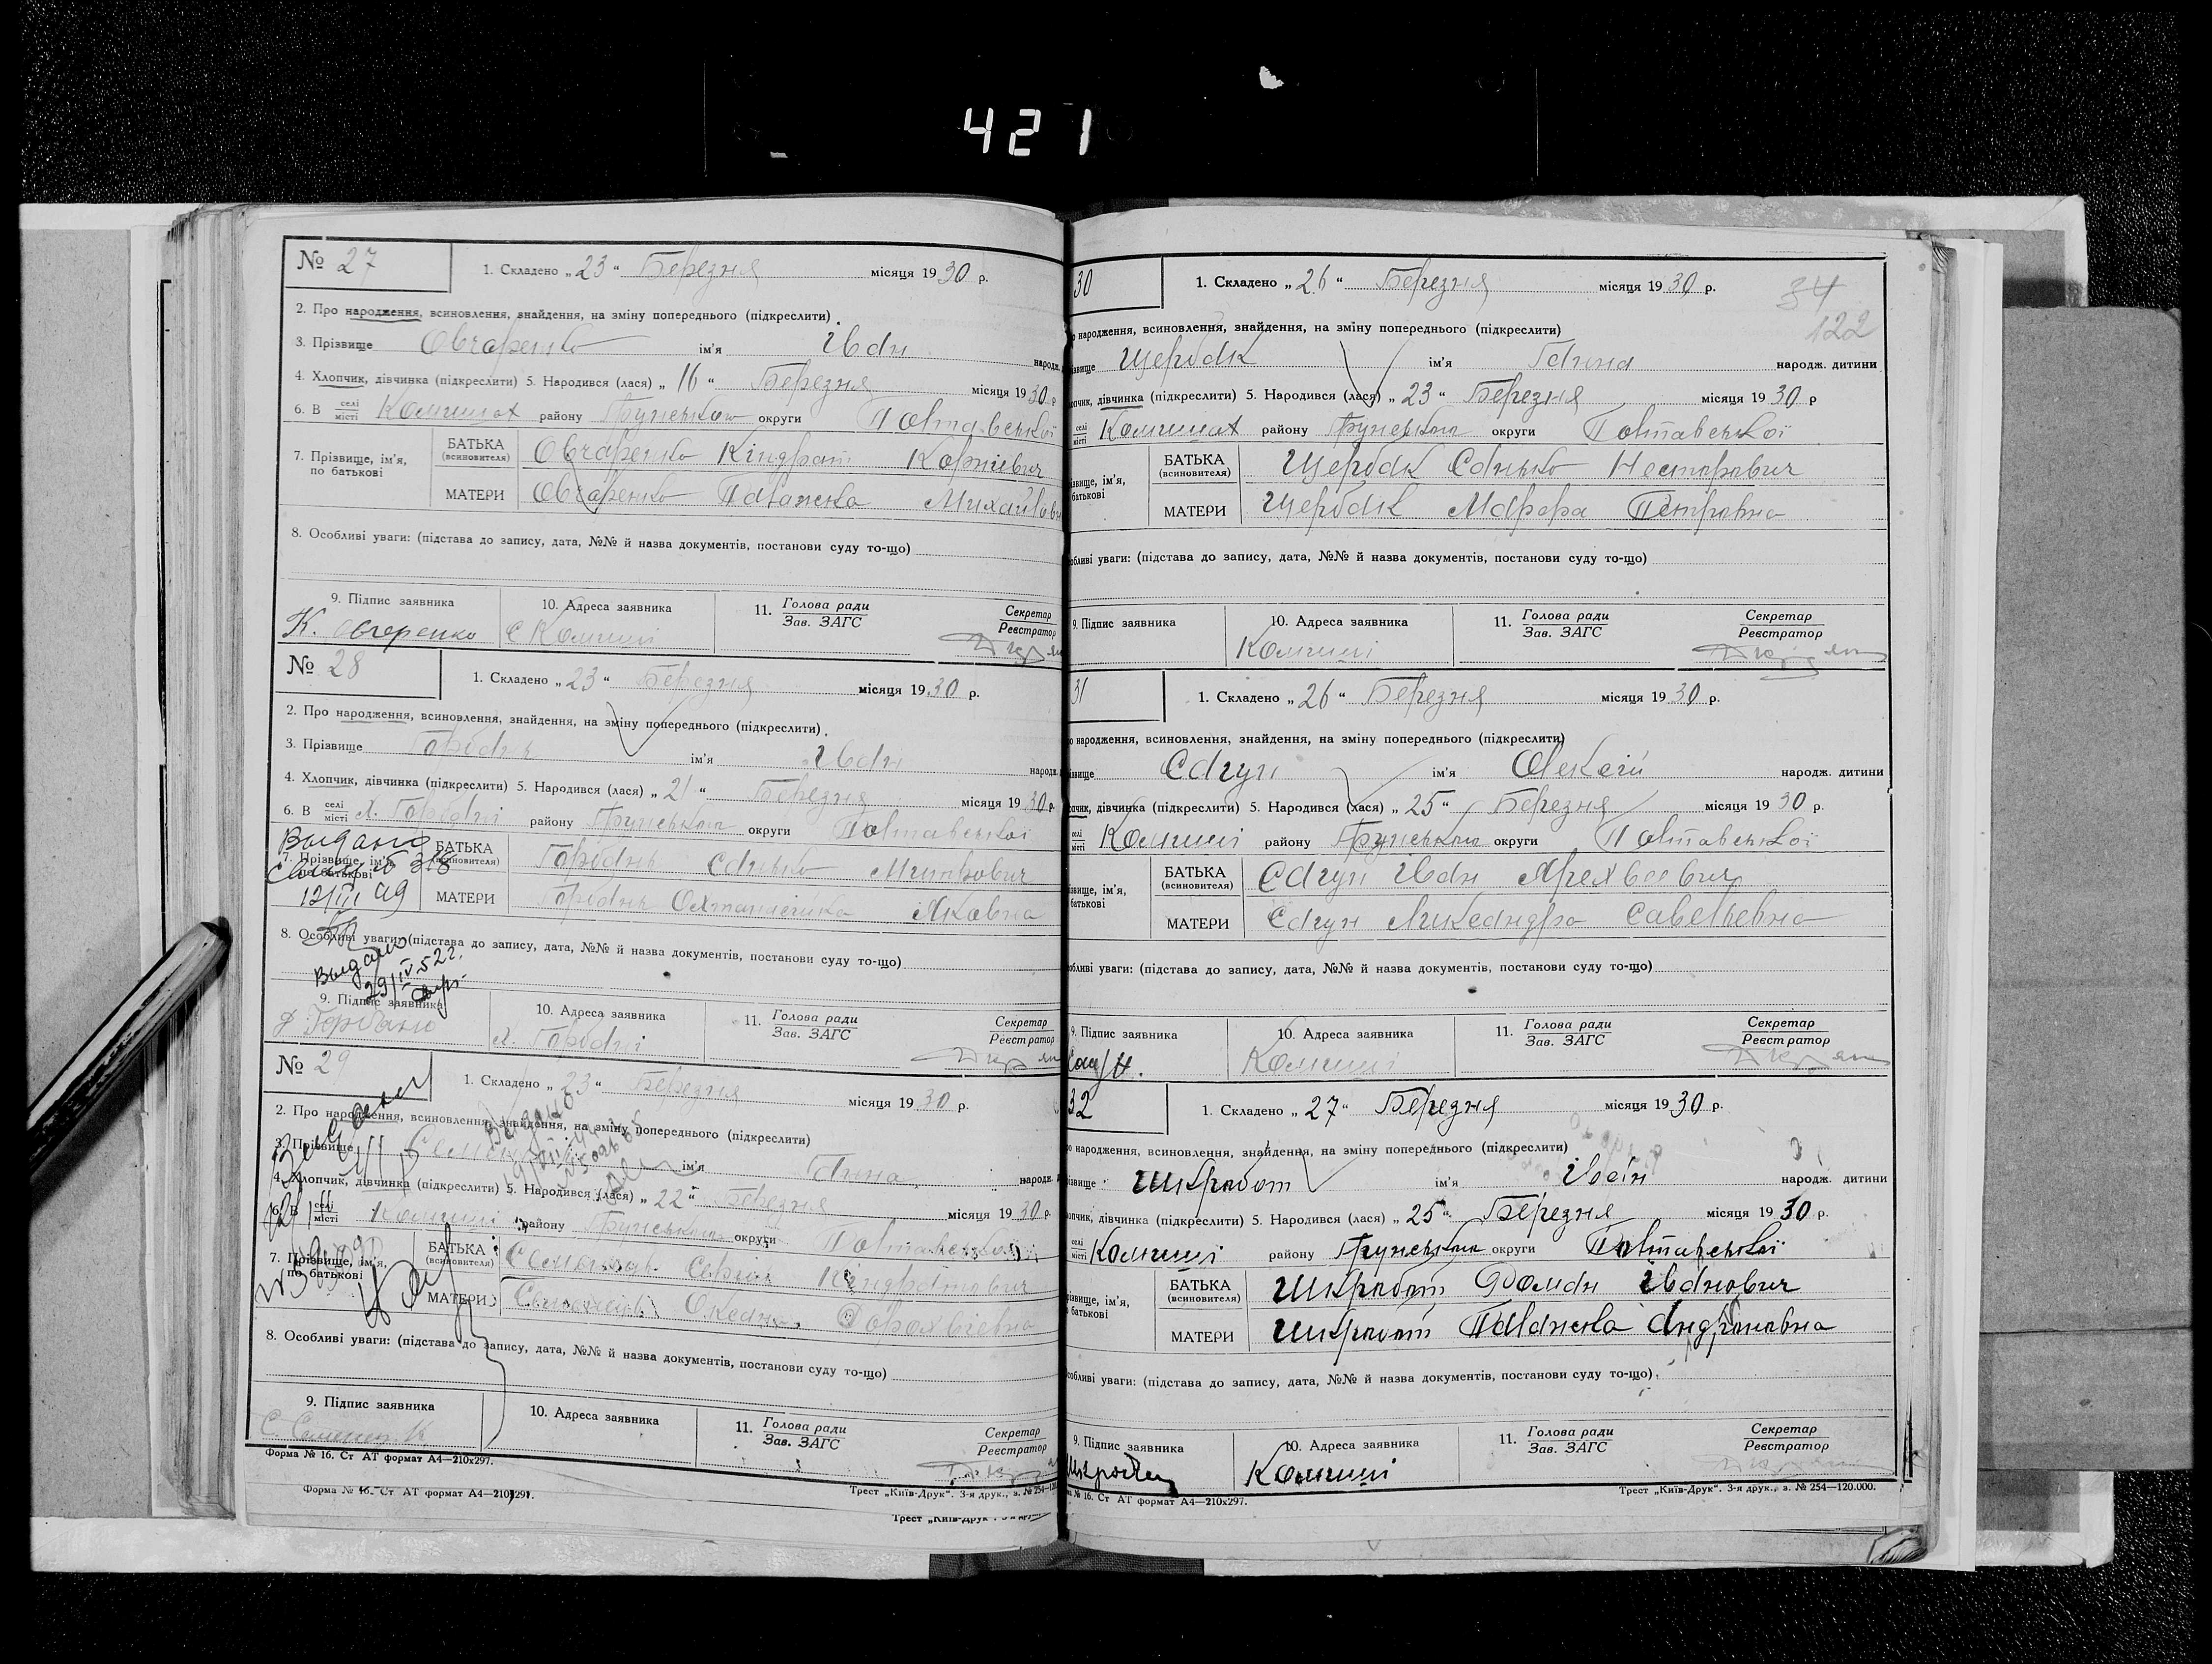 421
№ 27
1. Складено „ 23 “ Березня місяця 1930 р.
2. Про народження, всиновлення, знайдення, на зміну попереднього (підкреслити)
3. Прізвище Овчаренко ім'я Іван народж.
4. Хлопчик, дівчинка (підкреслити) 5. Народився (лася) „ 16 “ Березня місяця 1930 р
6. В селі місті Комишах району Грунського округи Полтавської
7. Прізвище, ім'я, по батькові
БАТЬКА (всиновителя) Овчаренко Кіндрат Корнієвич
МАТЕРИ Овчаренко Палажка Михайлов
8. Особливі уваги: (підстава до запису, дата, №№ й назва документів, постанови суду то-що)
9. Підпис заявника 10. Адреса заявника 11. Голова ради Зав. ЗАГС Секретар Реєстратор
К. Овчеренко с Комиші
№ 28
1. Складено „ 23 “ Березня місяця 1930 р.
2. Про народження, всиновлення, знайдення, на зміну попереднього (підкреслити)
3. Прізвище Горбань ім'я Іван народж.
4. Хлопчик, дівчинка (підкреслити) 5. Народився (лася) „ 21 “ Березня місяця 1930 р.
6. В селі місті х. Горбані району Грунського округи Полтавської
Выдано
7. Прізвище, ім'я, по батькові
318
12/III 49
БАТЬКА (всиновителя) Горбань Санько Митрович
МАТЕРИ Горбань Яковна
8. Особливі уваги: (підстава до запису, дата, №№ й назва документів, постанови суду то-що)
Выдано
29/IV-52г.
9. Підпис заявника 10. Адреса заявника 11. Голова ради Зав. ЗАГС Секретар Реєстратор
Горбань х. Горбані
№ 29
1. Складено „ 23 “ Березня місяця 1930 р.
2. Про народження, всиновлення, знайдення, на зміну попереднього (підкреслити)
3. Прізвище ім'я Ганна народж.
4. Хлопчик, дівчинка (підкреслити) 5. Народився (лася) „ 22 “ Березня місяця 1930 р.
6. В селі місті Комиші району Грунського округи Полтавської
7. Прізвище, ім'я, по батькові
БАТЬКА (всиновителя) Кіндратович
МАТЕРИ Дорохвієвна
8. Особливі уваги: (підстава до запису, дата, №№ й назва документів, постанови суду то-що)
9. Підпис заявника 10. Адреса заявника 11. Голова ради Зав. ЗАГС Секретар Реєстратор
Форма № 16. Ст АТ формат А4—210х297.
Форма № 16. Ст АТ формат А4—210х297.
Трест „Київ-Друк“. 3-я друк., з. № 254—120
30
1. Складено „ 26 “ Березня місяця 1930 р.
34
122
народження, всиновлення, знайдення, на зміну попереднього (підкреслити)
Щербак ім'я Ганна народж. дитини
дівчинка (підкреслити) 5. Народився (лася) „ 23 “ Березня місяця 1930 р
селі місті Комишах району Грунського округи Полтавської
ім'я, батькові
БАТЬКА (всиновителя) Щербак Санько Несторович
МАТЕРИ Щербак Марфа Петровна
уваги: (підстава до запису, дата, №№ й назва документів, постанови суду то-що)
9. Підпис заявника 10. Адреса заявника 11. Голова ради Зав. ЗАГС Секретар Реєстратор
Комиші
31
1. Складено „ 26 “ Березня місяця 1930 р.
народження, всиновлення, знайдення, на зміну попереднього (підкреслити)
Сагун ім'я Олексій народж. дитини
дівчинка (підкреслити) 5. Народився (лася) „ 25 “ Березня місяця 1930 р.
селі місті Комиші району Грунського округи Полтавської
ім'я, батькові
БАТЬКА (всиновителя) Сагун Іван
МАТЕРИ Сагун Савельевна
уваги: (підстава до запису, дата, №№ й назва документів, постанови суду то-що)
9. Підпис заявника 10. Адреса заявника 11. Голова ради Зав. ЗАГС Секретар Реєстратор
Комиші
32
1. Складено „ 27 “ Березня місяця 1930 р.
народження, всиновлення, знайдення, на зміну попереднього (підкреслити)
Шкробот ім'я Іван народж. дитини
дівчинка (підкреслити) 5. Народився (лася) „ 25 “ Березня місяця 1930 р.
селі місті Комиші району Грунського округи Полтавської
ім'я, батькові
БАТЬКА (всиновителя) Шкробот Роман Іванович
МАТЕРИ Шкробот Палажка
уваги: (підстава до запису, дата, №№ й назва документів, постанови суду то-що)
9. Підпис заявника 10. Адреса заявника 11. Голова ради Зав. ЗАГС Секретар Реєстратор
Комиші
№ 16. Ст АТ формат А4—210х297.
Трест „Київ-Друк“. 3-я друк., з. № 254—120.000.